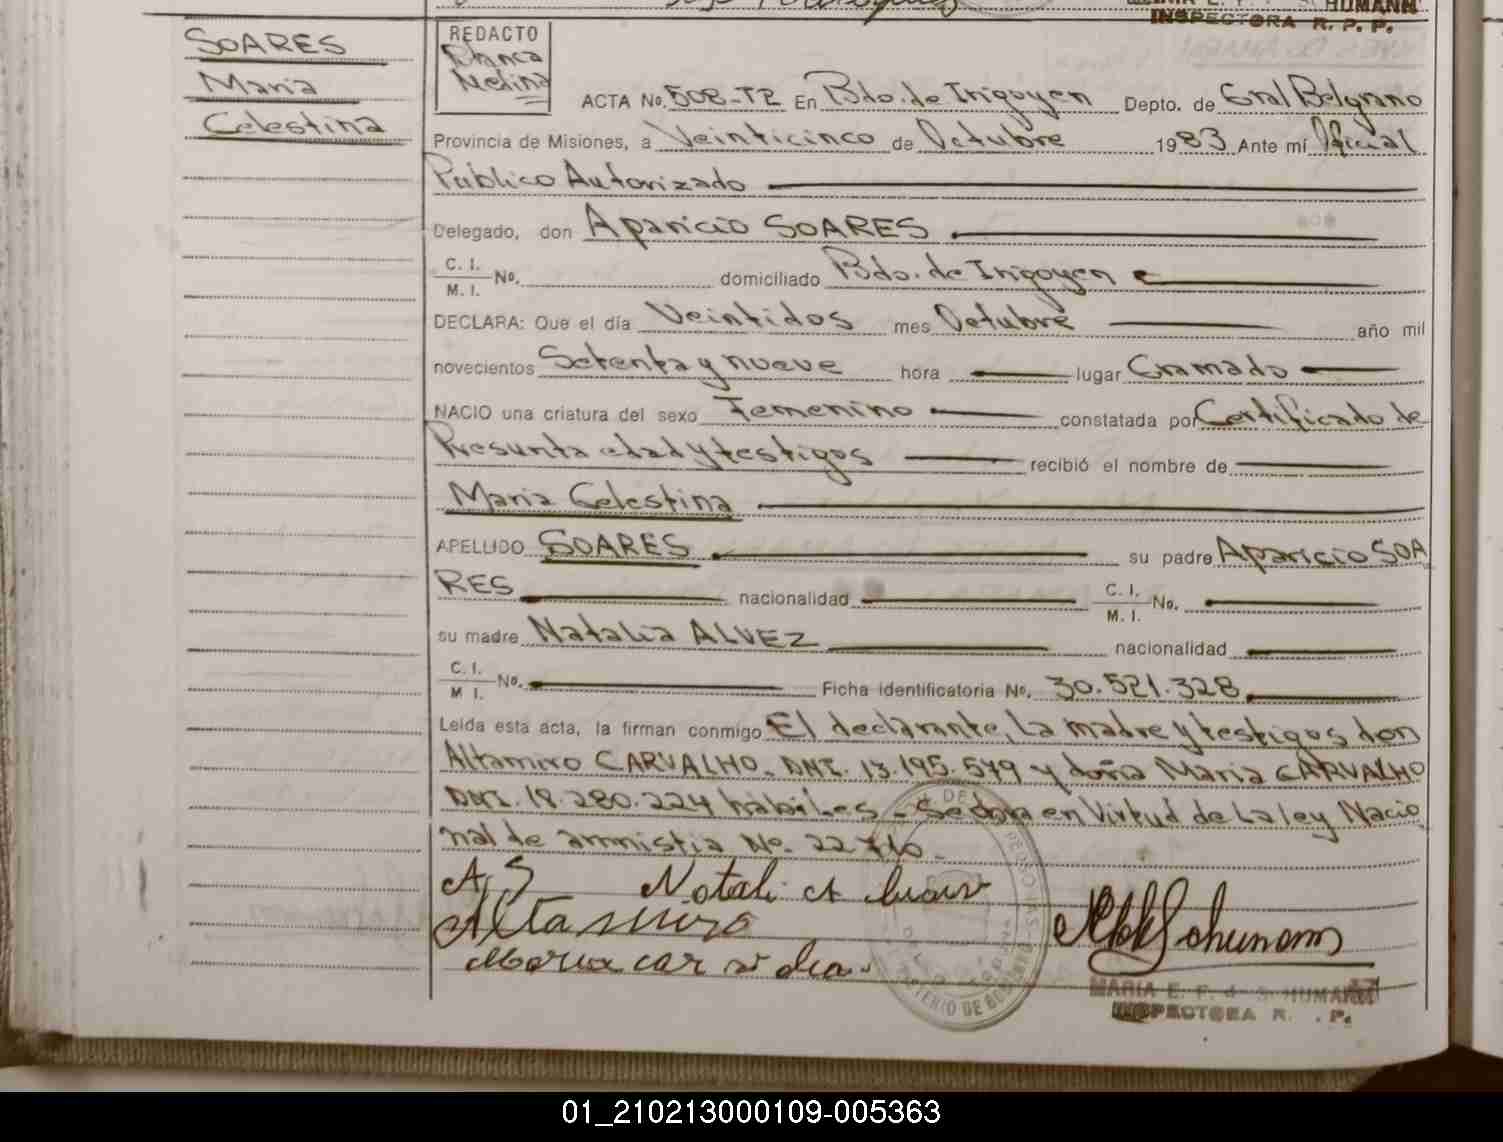 SCHUMANN
INSPECTORA R. P. P.
SOARES
Maria
Celestina
REDACTO
Blanca
Medina
ACTA No. 508-T2 En Bdo. de Irigoyen Depto. de Gral Belgrano
Provincia de Misiones, a Veinticinco de Octubre 1983 Ante mí Oficial
Publico Autorizado
Delegado, don Aparicio SOARES
C. I.
M. I. No. domiciliado Bdo. de Irigoyen
DECLARA: Que el día Veintidos mes Octubre año mil
novecientos Setenta y nueve hora lugar Gramado
NACIO una criatura del sexo Femenino constatada por Certificado de
Presunta edad y testigos recibió el nombre de
Maria Celestina
APELLIDO SOARES su padre Aparicio SOA
RES nacionalidad C. I. M. I. No.
su madre Natalia ALVEZ nacionalidad
C. I.
M I. No. Ficha Identificatoria No. 30.521.328
Leída esta acta, la firman conmigo El declarante, La madre y testigos don
Altamiro CARVALHO. DNI. 13.195.579 y doña Maria CARVALHO
DNI. 18.280.224 hábiles - Se labra en Virtud de La ley Nacio
nal de amnistia No.
A, S Natali
Altamiro
Maria
MARIA E. F. d SCHUMANN
INSPECTORA R. . P.
01_210213000109-005363